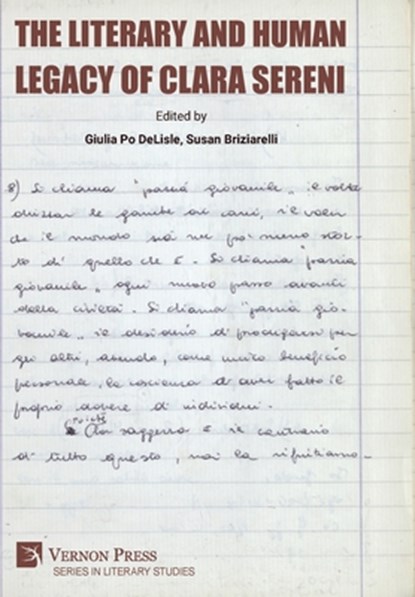 THE LITERARY AND HUMAN
LEGACY OF CLARA SERENI
Edited by
Giulia Po DeLisle, Susan Briziarelli
8) Si chiama "pazzia giovanile" il voler
drizzar le gambe ai cani, il voler
che il mondo sia un po' meno stor-
to di quello che è. Si chiama "pazzia
giovanile" ogni nuovo passo avanti
della civiltà. Si chiama "pazzia gio-
vanile" il desiderio di prodigarsi per
gli altri, avendo, come unico beneficio
personale, la coscienza d'aver fatto il
proprio dovere di individui.
Poiché
la saggezza è il contrario
di tutto questo, noi la rifiutiamo.
VERNON PRESS
SERIES IN LITERARY STUDIES